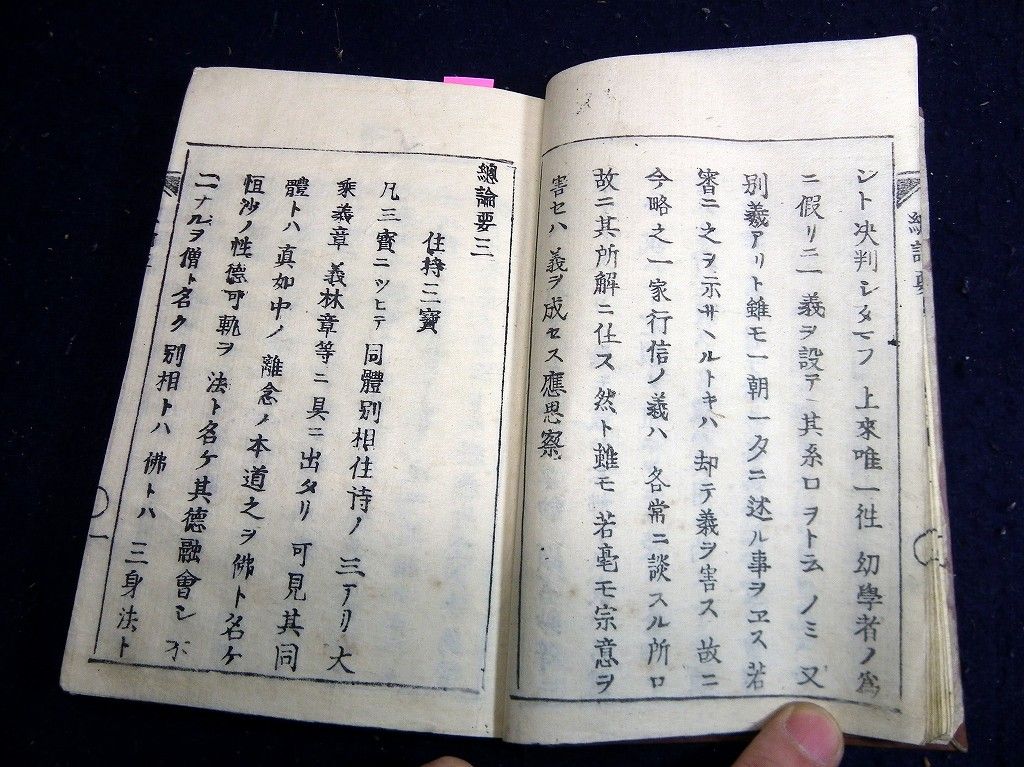 ント决判シタマフ 上來唯一徃 幼學者ノ爲
ニ假リニ一義ヲ設テ 其糸口ヲトル ノミ 又
別義アリト雖モ 一朝一夕ニ述ル事ヲヱス 若
審ニ之ヲ示サヘルトキハ 却テ義ヲ害ス 故ニ
今略之 一家行信ノ義ハ 各常ニ談スル所ロ
故ニ其所解ニ仕ス 然ト雖モ 若毫モ宗意ヲ
害セハ 義ヲ成セス 應思察
總論要
總論要三
住持三寳
凡三寳ニツヒテ 同體別相住诗ノ 三アリ 大
乘義章 義林章等ニ具ニ出タリ 可見其同
體トハ 真如中ノ 離念ノ本道之ヲ佛ト名ケ
恒沙ノ性德可軌ヲ 法ト名ケ其德融會シ 不
二ナルヲ僧ト名ク 別相トハ 佛トハ 三身法ト